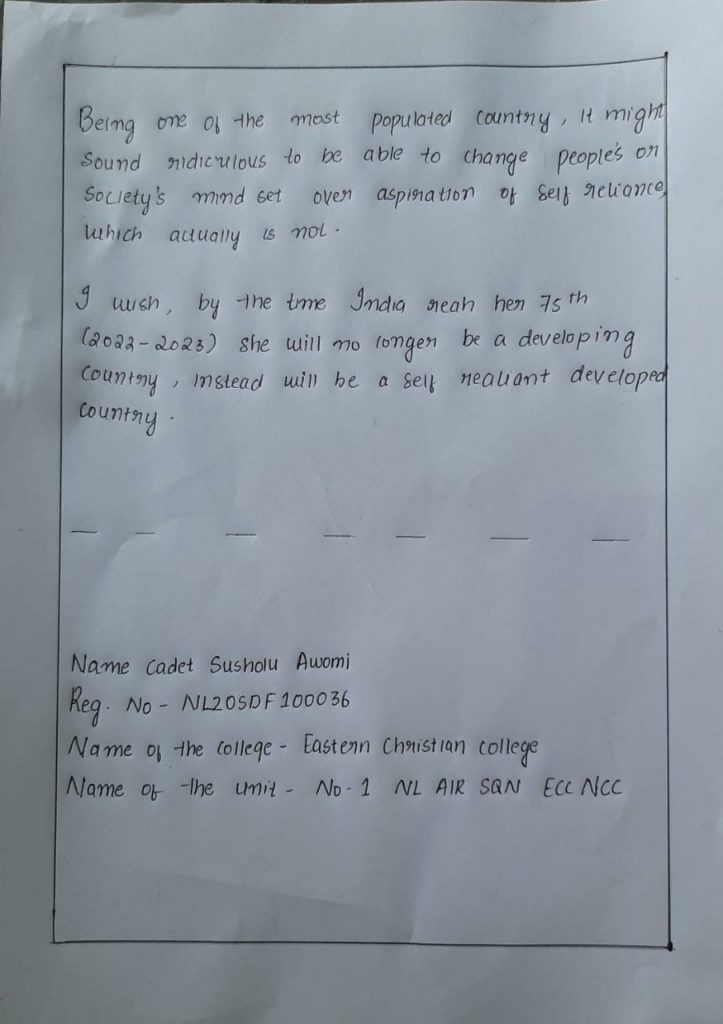 Being one of the most populated country, it might
sound ridiculous to be able to change people's or
society's mind set over aspiration of self reliance,
which actually is not.
I wish, by the time India reah her 75th
(2022-2023) she will no longer be a developing
country, instead will be a self realiant developed
country.
Name Cadet Susholu Awomi
Reg. No - NL20SDF100036
Name of the college - Eastern Christian college
Name of the unit - No. 1 NL AIR SQN ECC NCC